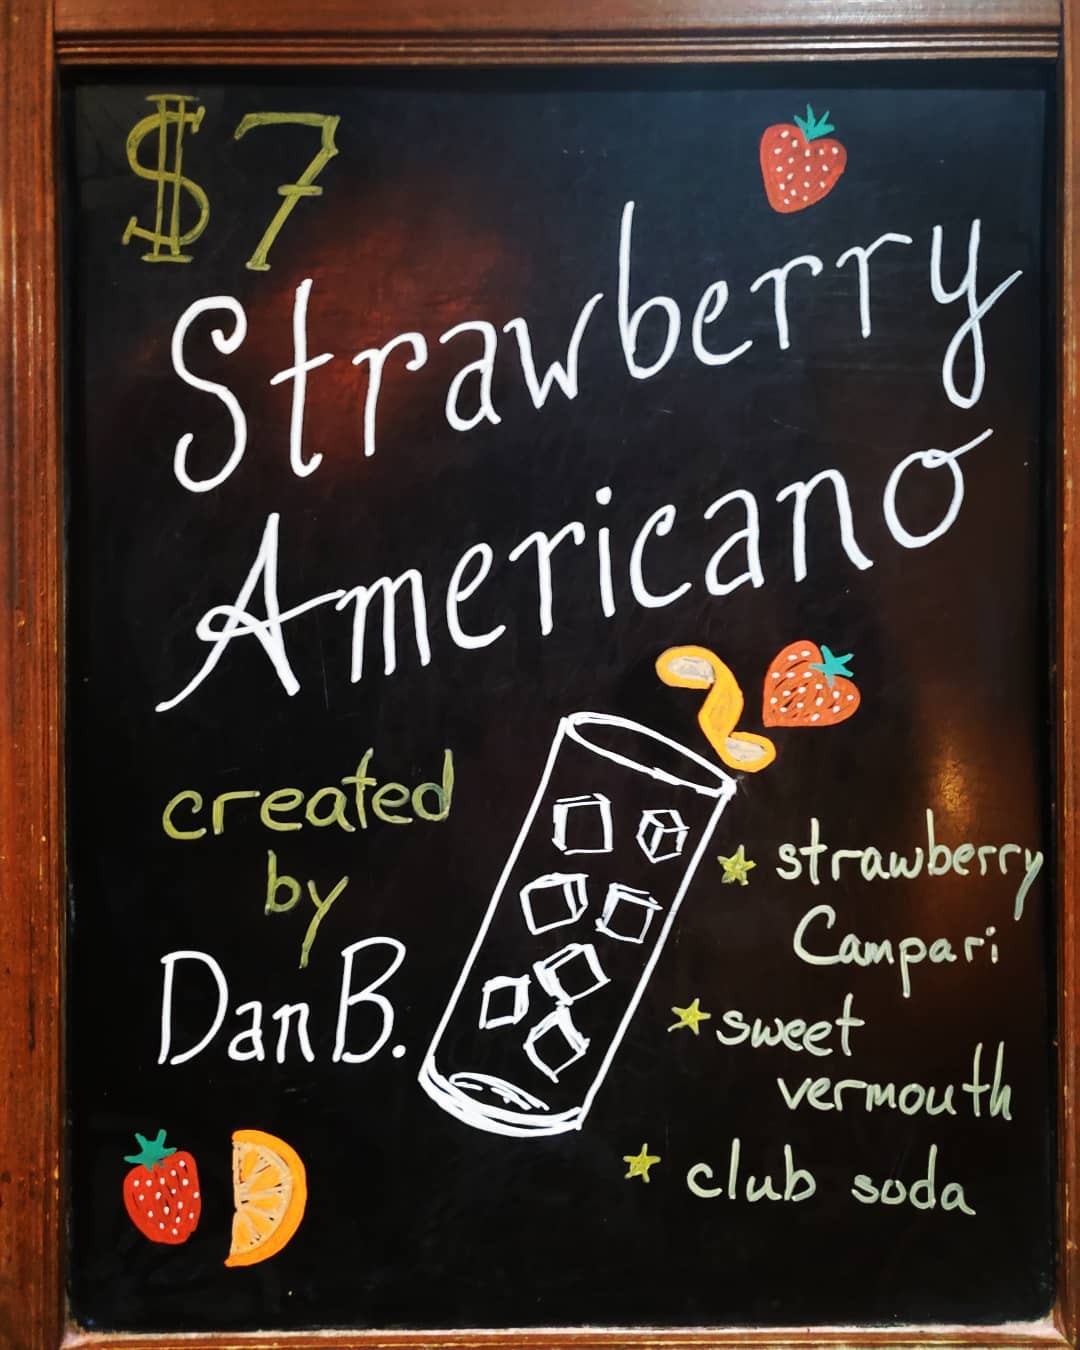 $7
Strawberry
Americano
created
by
Dan B.
strawberry
Campari
sweet
vermouth
club soda